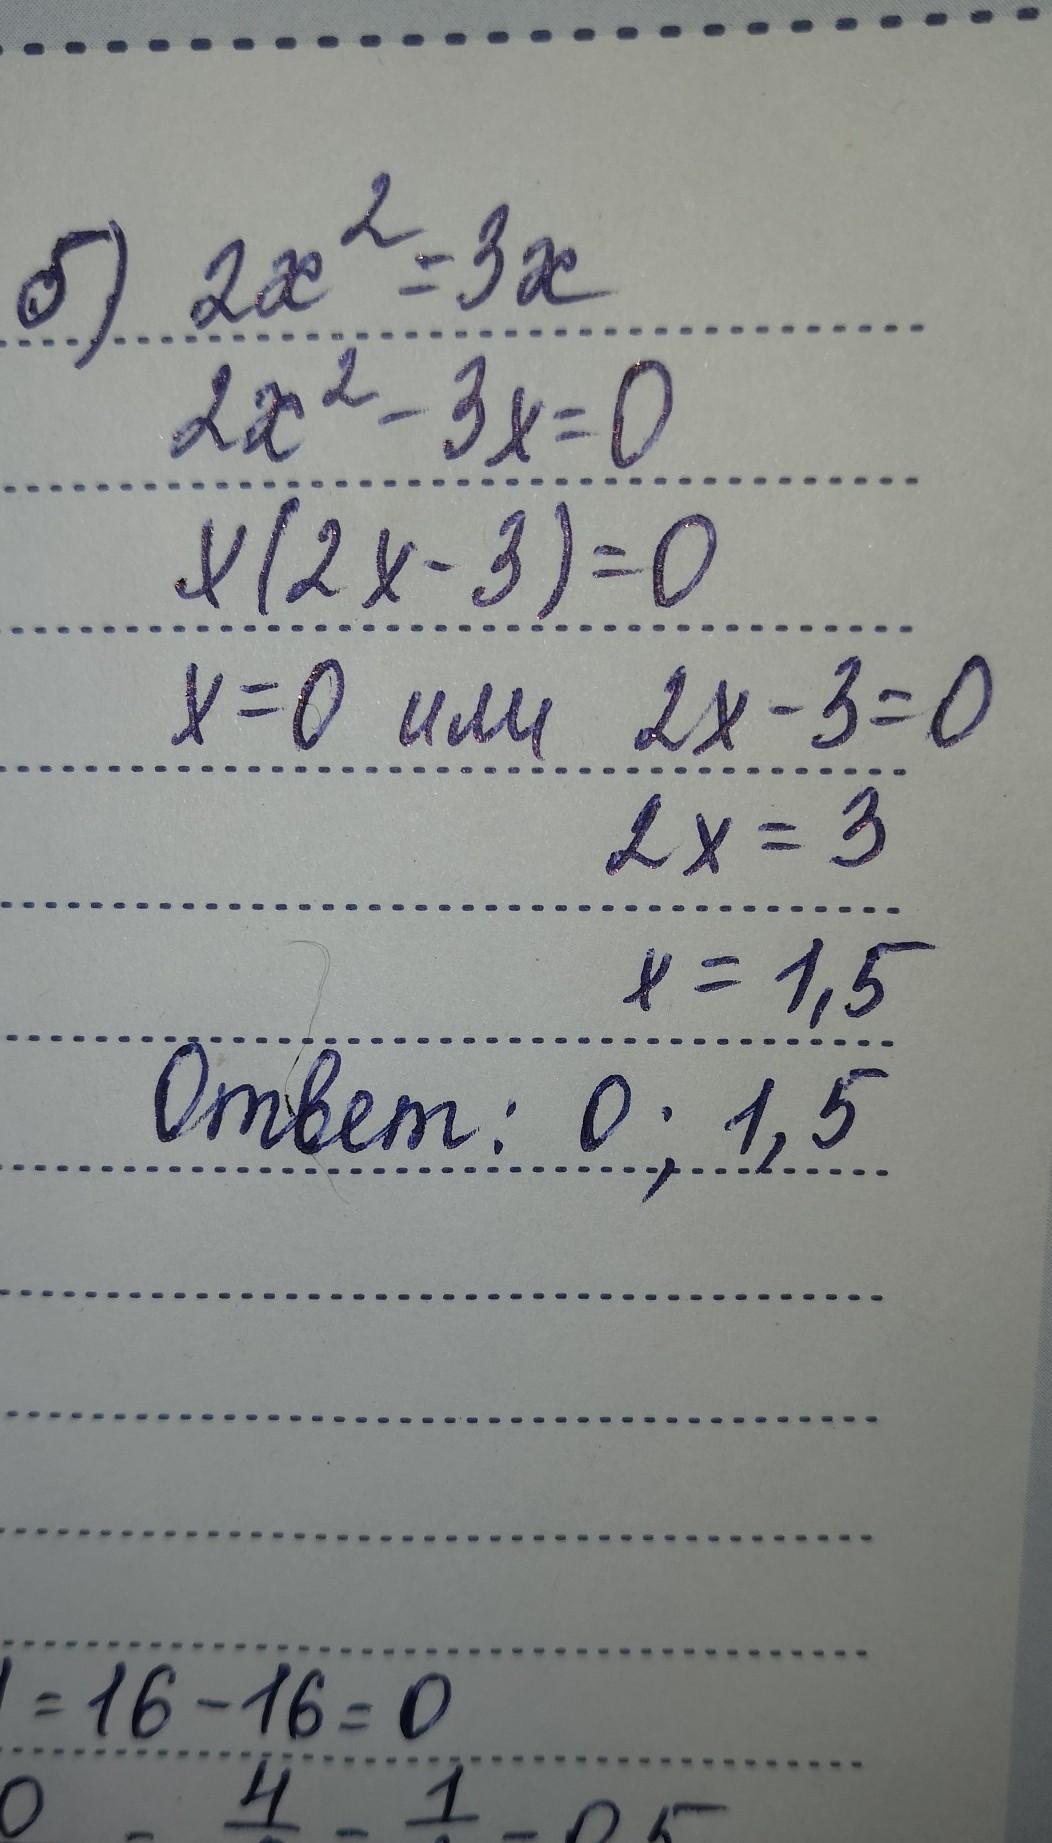 б) 2x² = 3x
2x² - 3x = 0
x(2x - 3) = 0
x = 0 или 2x - 3 = 0
2x = 3
x = 1,5
Ответ: 0; 1,5
= 16 - 16 = 0